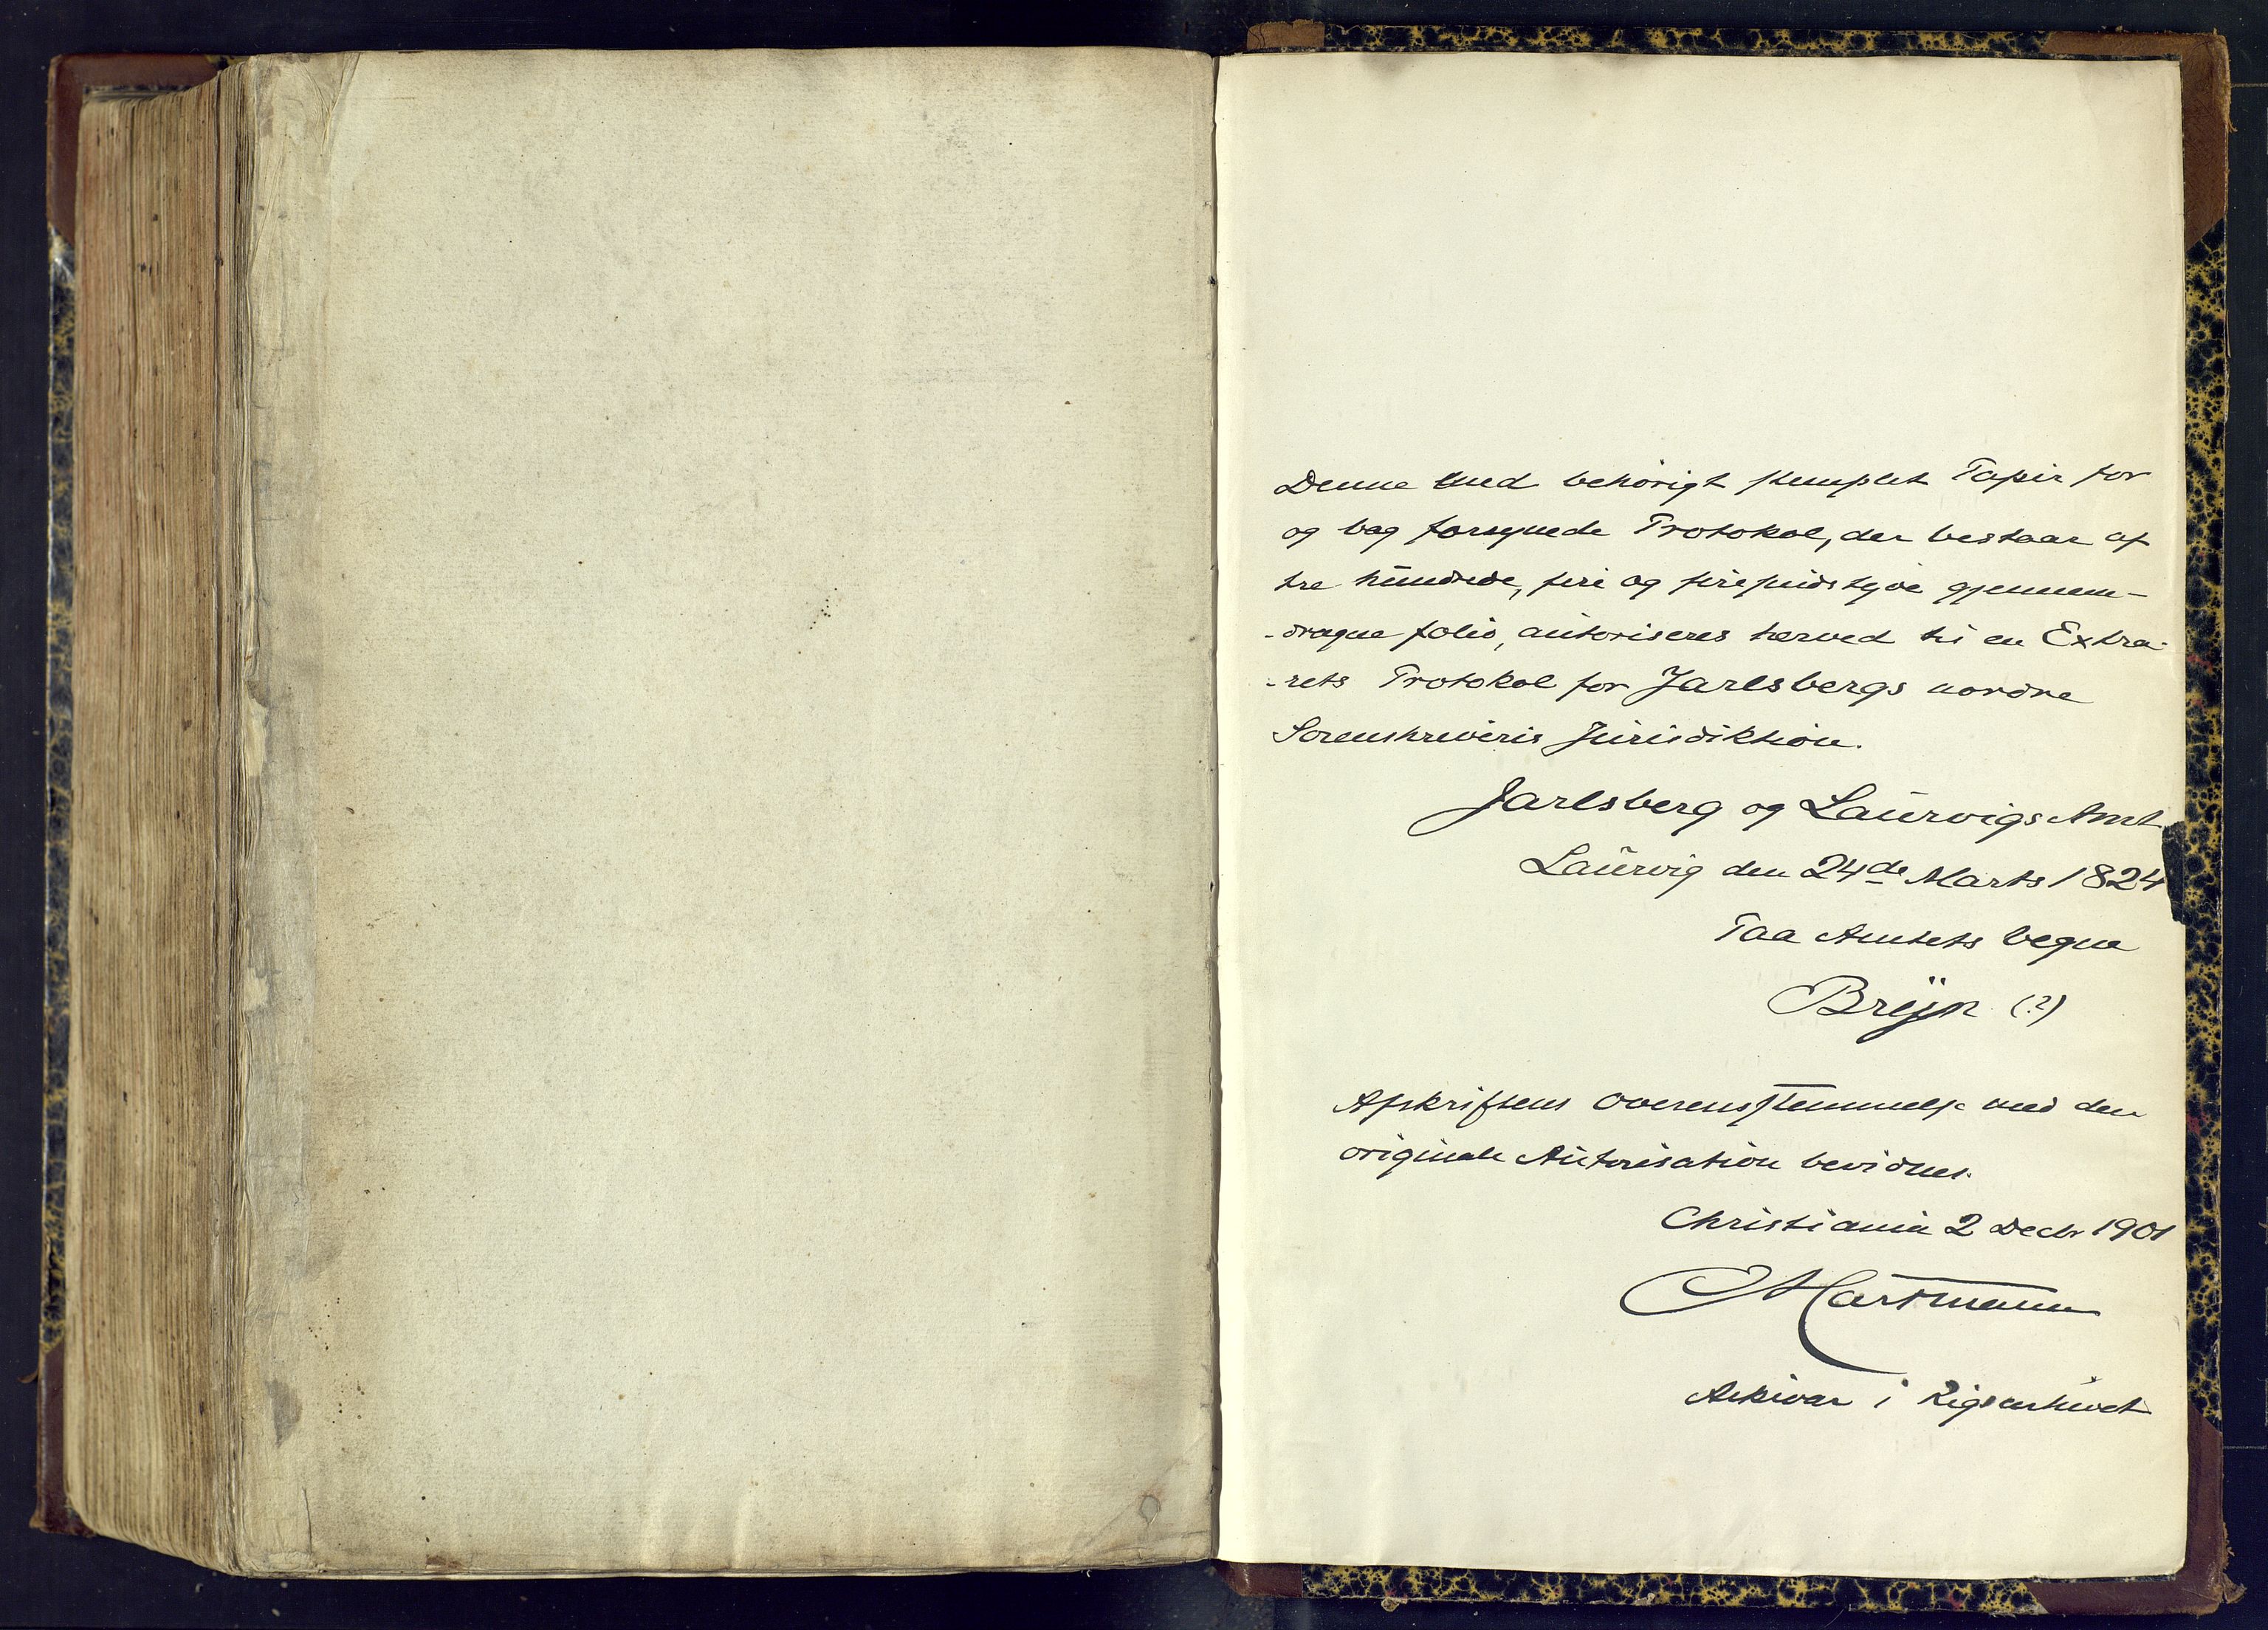 Denne med behörigt stemplet Papir for
og bag forsynede Protokol, der bestaar af
tre hundrede, fire og firesindstyve gjennem-
-dragne folio, autoriseres herved til en Extra-
-rets Protokol for Jarlsbergs nordre
Sorenskriveris Jurisdiktion.
Jarlsberg og Laurvigs Amt
Laurvig den 24de Marts 1824
Paa Amtets Vegne
Breÿn (?)
Afskriftens Overensstemmelse med den
originale Autorisation bevidnes.
Christiania 2 Decbr 1901
Hartmann
Arkivar i Rigsarkivet